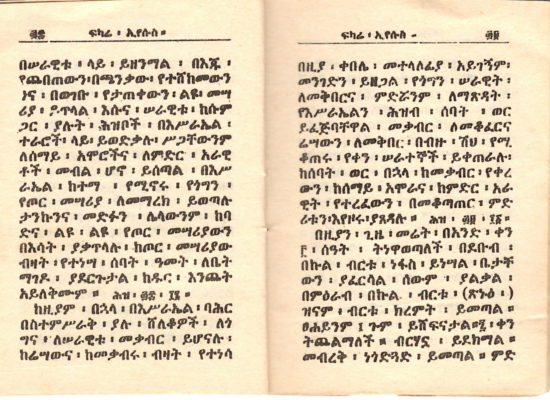 ፴፰ ፍካሬ ፡ ኢየሱስ ።
በሠራዊቱ ፡ ላይ ፡ ይዘንማል ፡ በእጁ ፡
የጨበጠውን፡በጫንቃው፡የተሸከመውን
ጎና ፡ በወገቡ ፡ የታጠቀውን ፡ ልዩ፡ መሣ
ሪያ ፡ ይጥላል ፡ እሱና ፡ ሠራዊቱ ፡ ከሱም
ጋር ፡ ያሉት ፡ ሕዝቦች ፡ በእሥራኤል ፡
ተራሮች፡ላይ፡ይወድቃሉ፡ሥጋቸውንም
ለሰማይ ፡ አሞሮችና ፡ ለምድር ፡ አራዊ
ቶች ፡ መብል ፡ ሆኖ ፡ ይሰጣል ፡ በእሥ
ራኤል ፡ ከተማ ፡ የሚኖሩ ፡ የጎግን ፡
የጦር ፡ መሣሪያ ፡ ለመማረክ ፡ ይወጣሉ
ታንኩንና ፡ መድፉን ፡ ሌላውንም ፡ ከባ
ድና ፡ ልዩ ፡ ልዩ ፡ የጦር ፡ መሣሪያውን
በእሳት ፡ ያቃጥላሉ ፡ ከጦር ፡ መሣሪያው
ብዛት ፡ የተነሣ ፡ ሰባት ፡ ዓመት ፡ ለቤት
ማገዶ ፡ ያደርጉታል ፡ ከዱር ፡ እንጨት
አይለቅሙም ። ሕዝ ፡
ከዚያም ፡ በኋላ ፡ በእሥራኤል ፡ ባሕር
በስተምሥራቅ ፡ ያሉ ፡ ሸለቆዎች ፡ ለጎ
ግና ፡ ለሠራዊቱ ፡ መቃብር ፡ ይሆናሉ ፡
ከሬሣውና ፡ ከመቃብሩ ፡ ብዛት ፡ የተነሳ
ፍካሬ ፡ ኢየሱስ ። ፴፱
በዚያ ፡ ቀበሌ ፡ መተላለፊያ ፡ አይገኝም፡
መንገድን ፡ ይዘጋል ፡ የጎግን ፡ ሠራዊት ፡
ለመቅበርና ፡ ምድሯንም ፡ ለማጽዳት ፡
የእሥራኤልን ፡ ሕዝብ ፡ ሰባት ፡ ወር
ይፈጅባቸዋል ፡ መቃብር ፡ ለመቆፈርና
ሬሣውን ፡ ለመቅበር፡ በብዙ ፡ ሽህ ፡ የሚ
ቆጠሩ ፡ የቀን ፡ ሠራተኞች ፡ ይቀጠራሉ፡
ከሰባት ፡ ወር ፡ በኋላ ፡ ከመቃብር ፡ የቀረ
ውን ፡ ከሰማይ ፡ አሞራና ፡ ከምድር ፡ አራ
ዊት ፡ የተረፈውን ፡ በመቆጣጠር ፡ ምድ
ሪቱን፡እየዞሩ፡ያጸዳሉ ። ሕዝ ፡
በዚያን ፡ ጊዜ ፡ መሬት ፡ በአንድ ፡ ቀን
፫ ፡ ሰዓት ፡ ትነዋወጣለች ፡ በደቡብ ፡
በኩል ፡ ብርቱ ፡ ነፋስ ፡ ይነሣል ፡ ቤታቸ
ውን ፡ ያፈርሳል ፡ ሰውም ፡ ያልቃል ፡
በምዕራብ ፡ በኩል ፡ ብርቱ ፡ (ጽኑዕ ፡ )
ዝናም ፡ ብርቱ ፡ ክረምት ፡ ይመጣል ።
ፀሐይንም ፡ ጉም ፡ ይሸፍናታል።፯ ፡ ቀን
ትጨልማለች ። ብርሃኗ ፡ ይደክማል ።
መብረቅ ፡ ነጎድጓድ ፡ ይመጣል ። ምድ